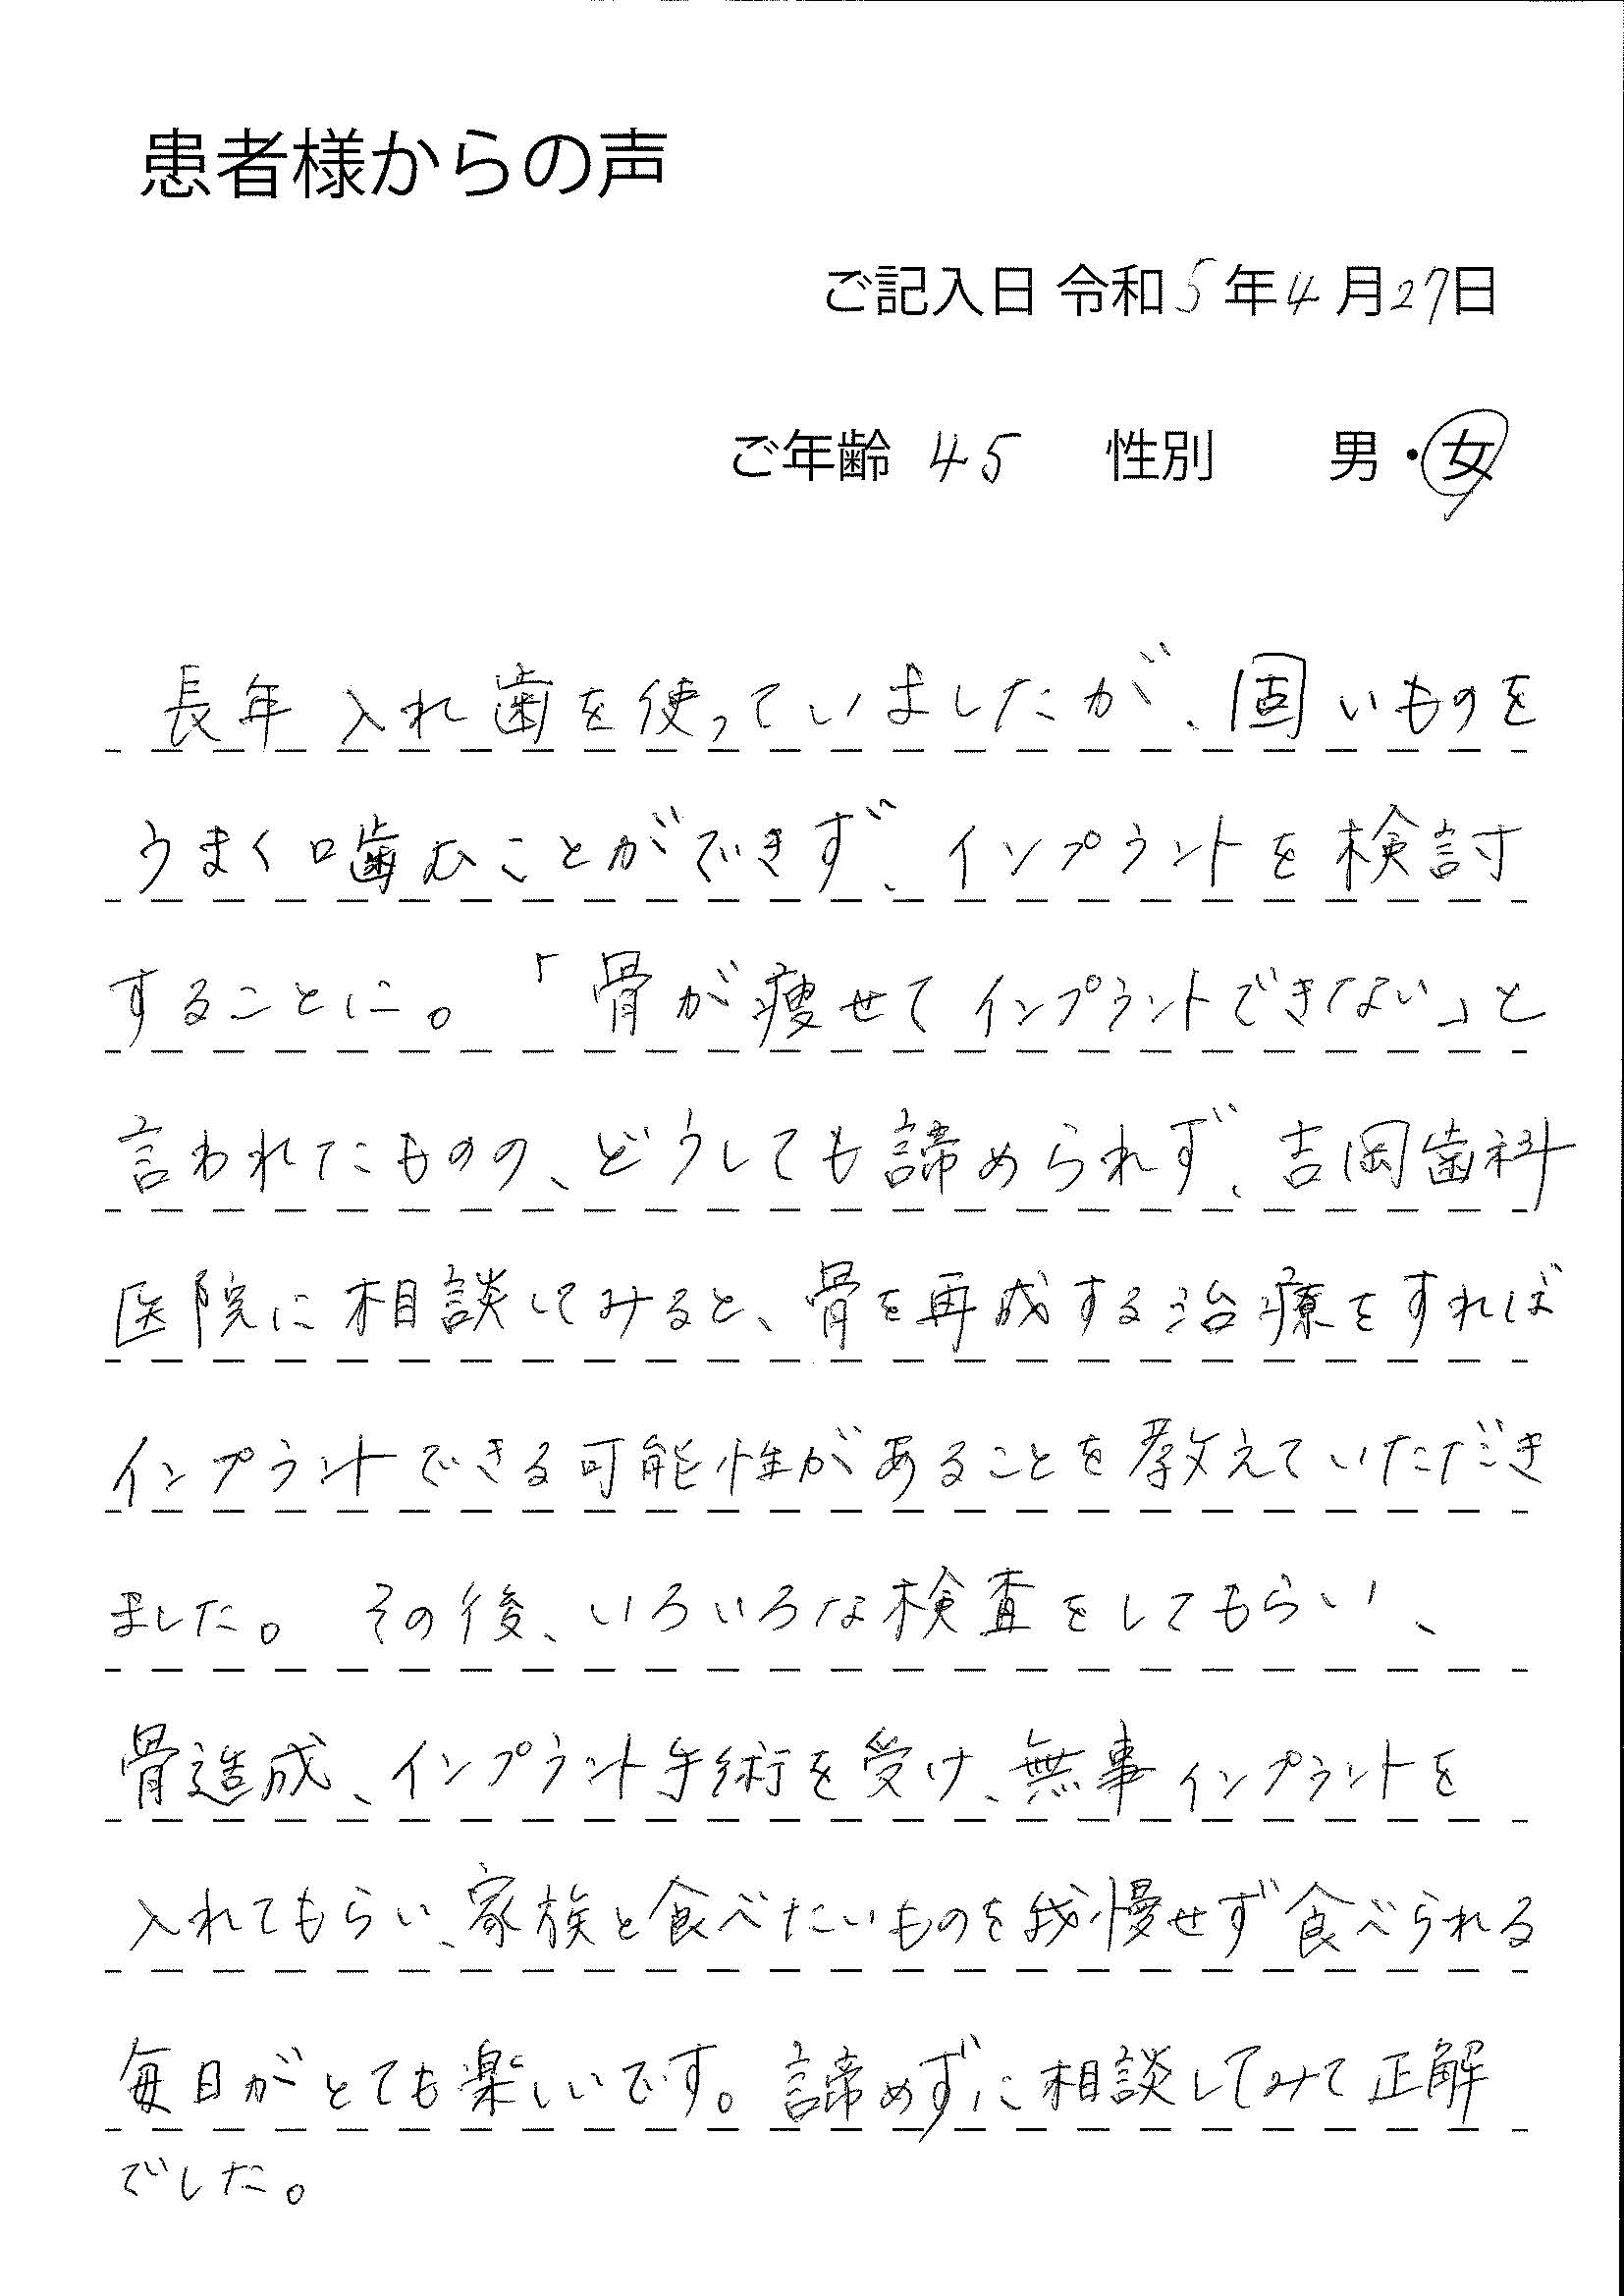 患者様からの声
ご記入日 令和5年4月27日
ご年齢 45 性別 男・女
長年入れ歯を使っていましたが、固いものを
うまく噛むことができず、インプラントを検討
することに。「骨が痩せてインプラントできない」と
言われたものの、どうしても諦められず、吉岡歯科
医院に相談してみると、骨を再成する治療をすれば
インプラントできる可能性があることを教えていただき
ました。その後、いろいろな検査をしてもらい、
骨造成、インプラント手術を受け、無事インプラントを
入れてもらい、家族と食べたいものを我慢せず食べられる
毎日がとても楽しいです。諦めずに相談してみて正解
でした。